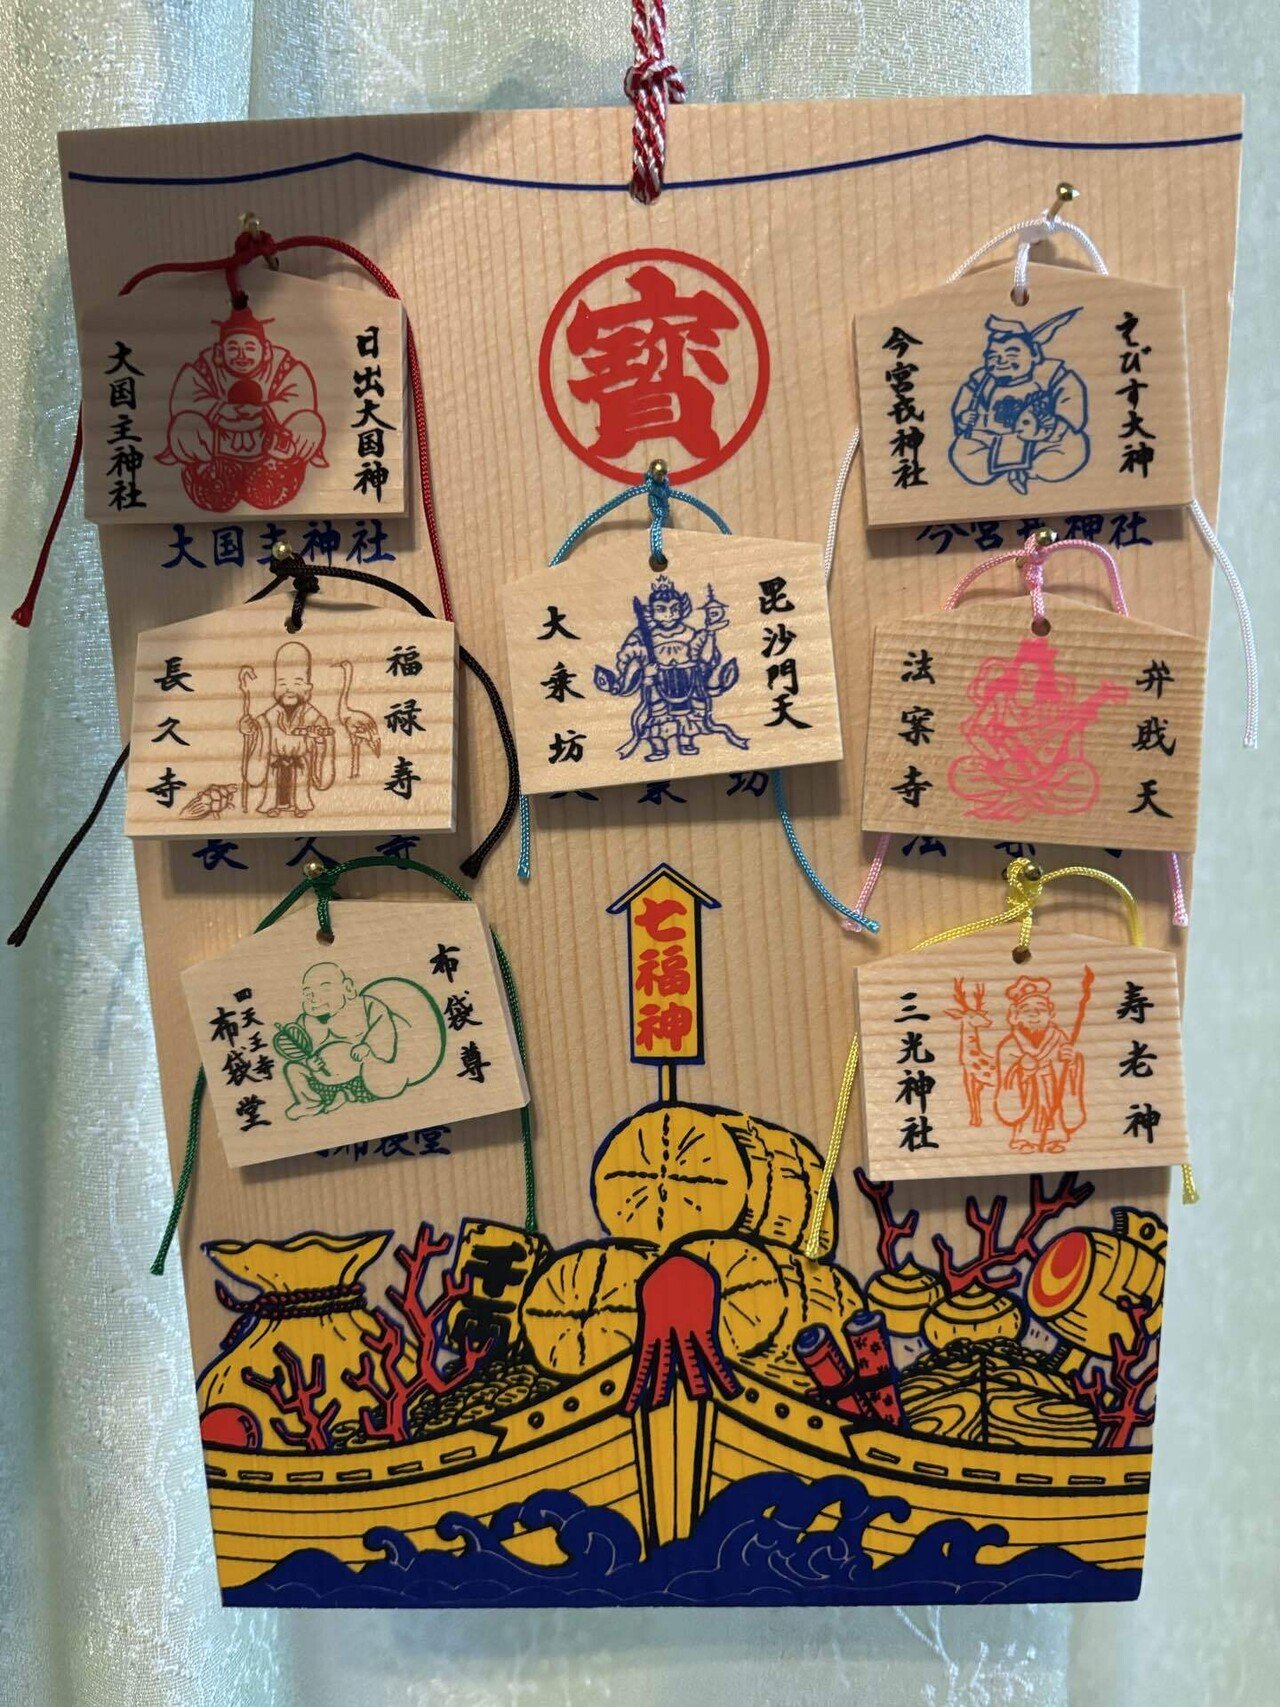 寶
日出大国神
大国主神社
大国主神社
えびす大神
今宮戎神社
今宮戎神社
毘沙門天
大乗坊
大乗坊
福禄寿
長久寺
長久寺
弁戝天
法案寺
法案寺
布袋尊
四天王寺
布袋堂
布袋堂
寿老神
三光神社
七福神
千両